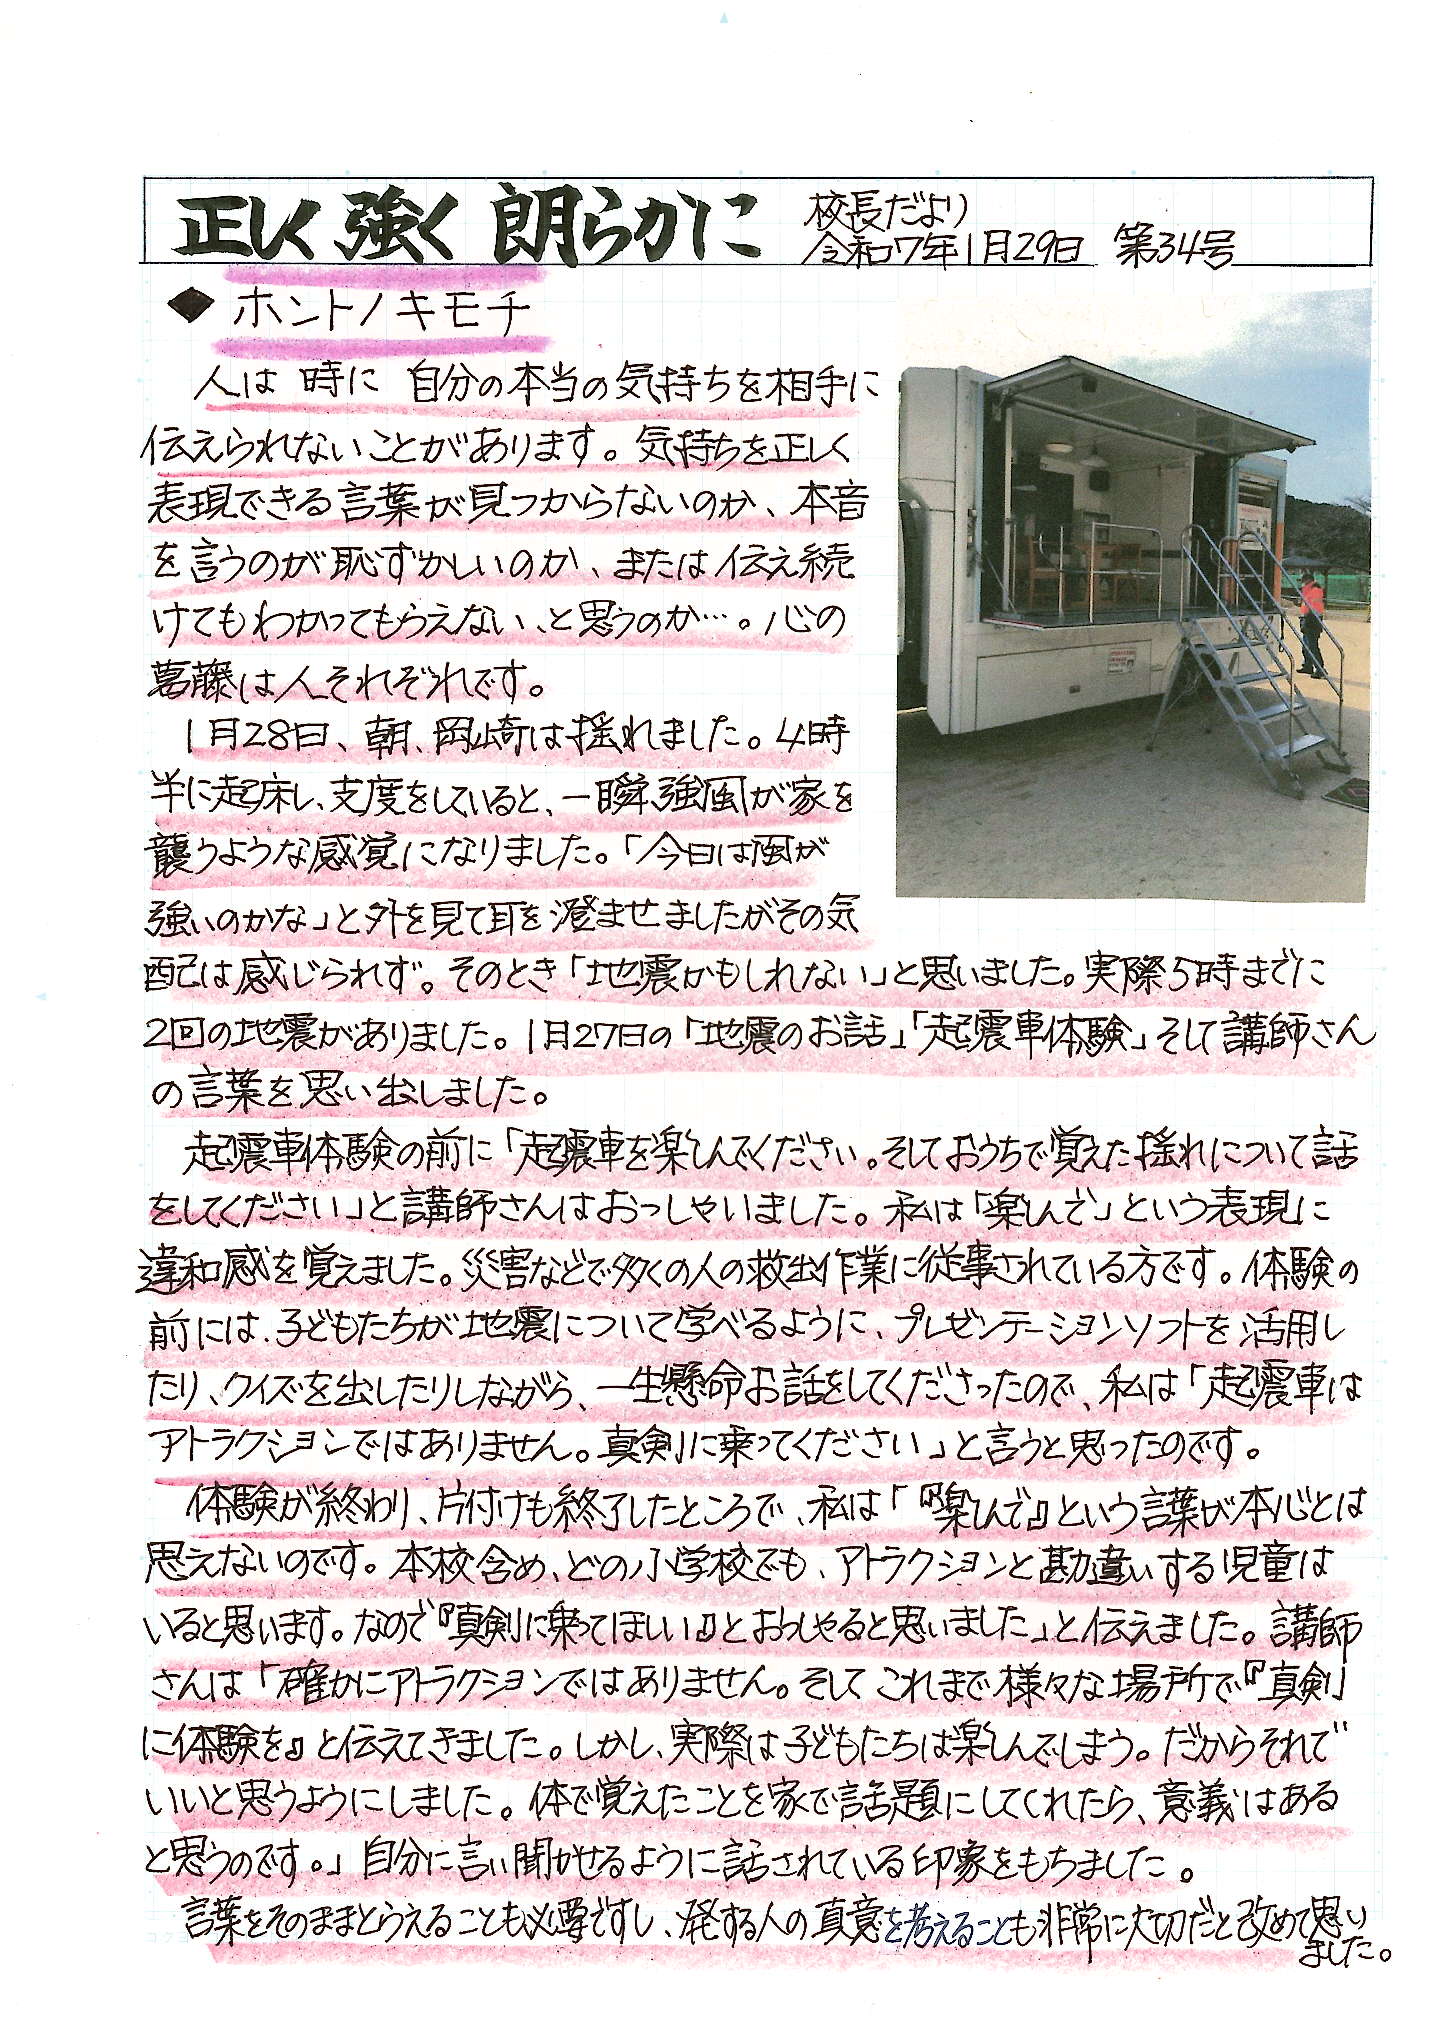 正しく 強く 朗らかに
校長だより
令和7年1月29日 第34号
◆ ホントノキモチ
人は 時に 自分の本当の気持ちを相手に
伝えられないことがあります。気持ちを正しく
表現できる言葉が見つからないのか、本音
を言うのが恥ずかしいのか、または伝え続
けてもわかってもらえない、と思うのか…。心の
葛藤は人それぞれです。
1月28日、朝、岡崎は揺れました。4時
半に起床し、支度をしていると、一瞬強風が家を
襲うような感覚になりました。「今日は風が
強いのかな」と外を見て耳を澄ませましたがその気
配は感じられず。そのとき「地震かもしれない」と思いました。実際5時までに
2回の地震がありました。1月27日の「地震のお話」「起震車体験」そして講師さん
の言葉を思い出しました。
起震車体験の前に「起震車を楽しんでください。そしておうちで覚えた揺れについて話
をしてください」と講師さんはおっしゃいました。私は「楽しんで」という表現に
違和感を覚えました。災害などで多くの人の救出作業に従事されている方です。体験の
前には、子どもたちが地震について学べるように、プレゼンテーションソフトを活用し
たり、クイズを出したりしながら、一生懸命お話をしてくださったので、私は「起震車は
アトラクションではありません。真剣に乗ってください」と言うと思ったのです。
体験が終わり、片付けも終了したところで、私は「『楽しんで』という言葉が本心とは
思えないのです。本校含め、どの小学校でも、アトラクションと勘違いする児童は
いると思います。なので『真剣に乗ってほしい』とおっしゃると思いました」と伝えました。講師
さんは「確かにアトラクションではありません。そしてこれまで様々な場所で『真剣
に体験を』と伝えてきました。しかし、実際は子どもたちは楽しんでしまう。だからそれで
いいと思うようにしました。体で覚えたことを家で話題にしてくれたら、意義はある
と思うのです。」自分に言い聞かせるように話されている印象をもちました。
言葉をそのままとらえることも必要ですし、発する人の真意を考えることも非常に大切だと改めて思い
ました。